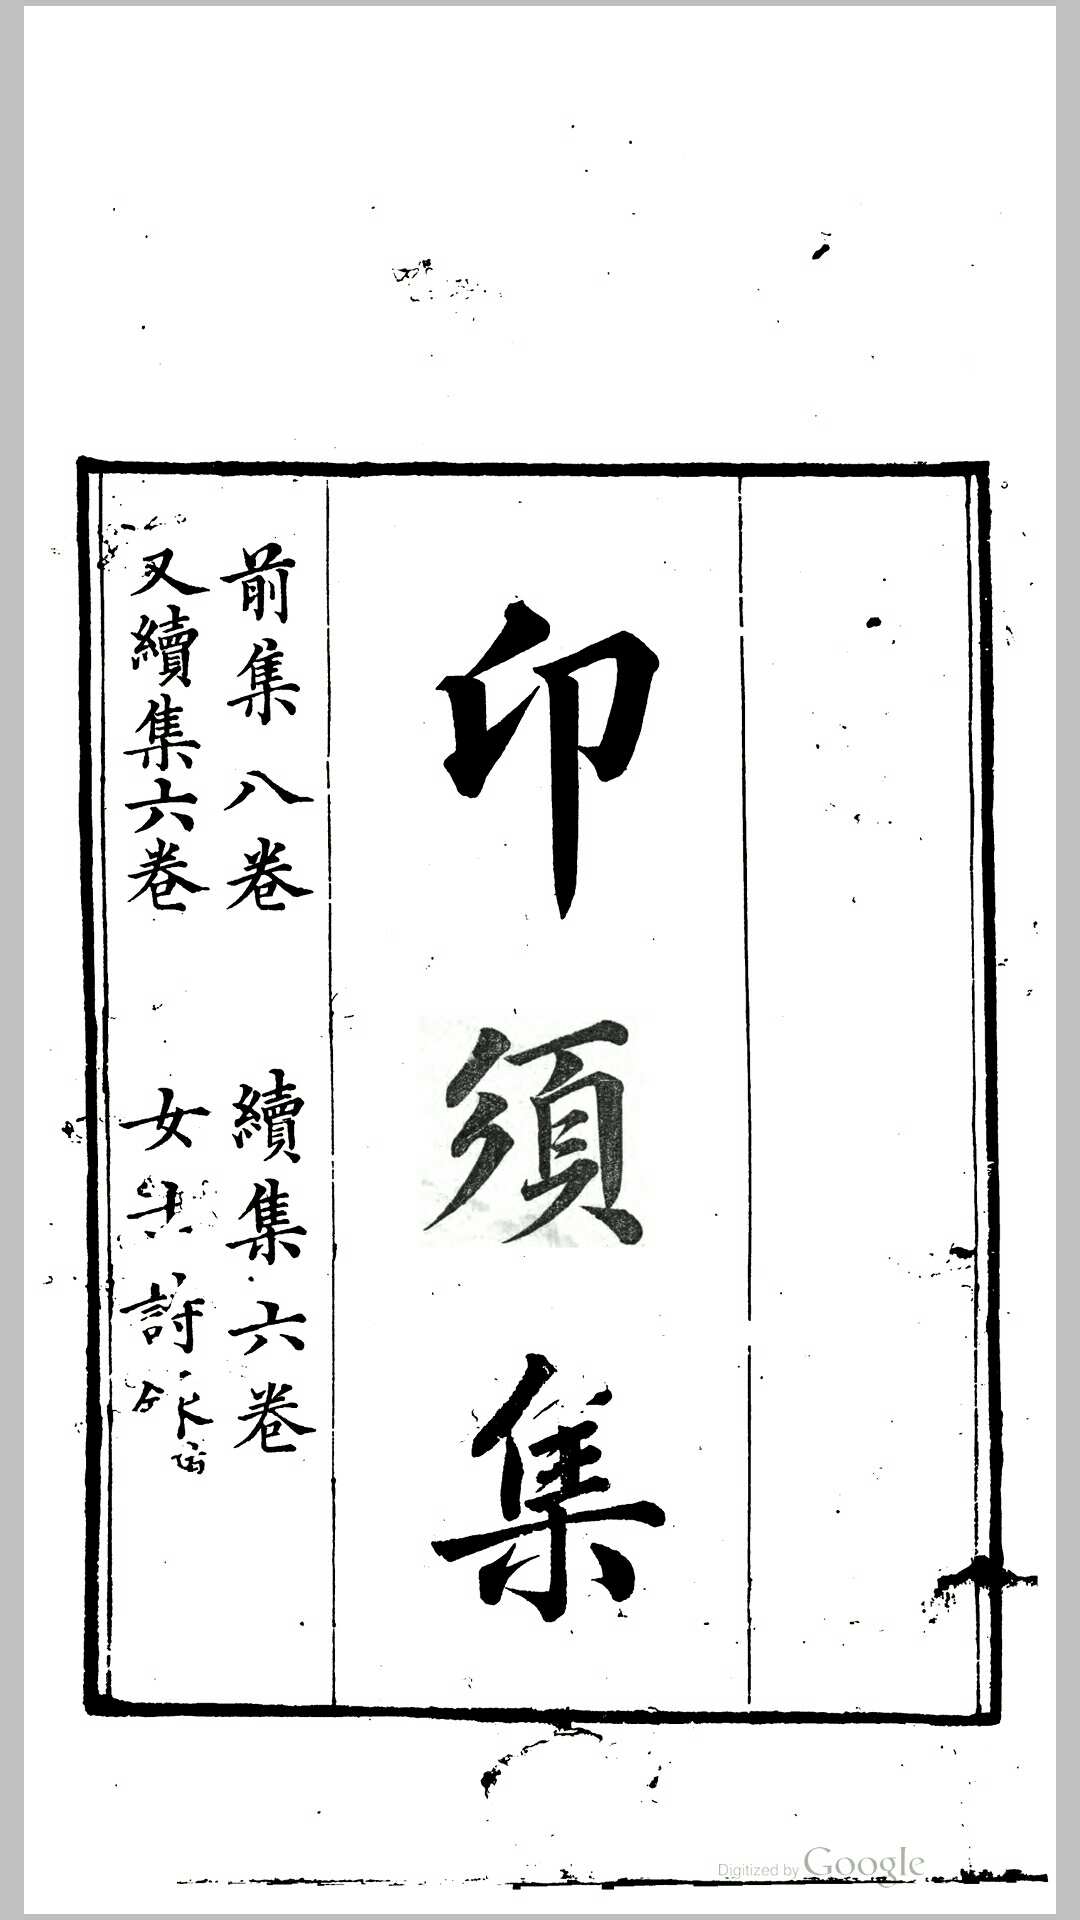 卬須集
前集八卷 續集六卷
又續集六卷 女 詩
Digitized by Google